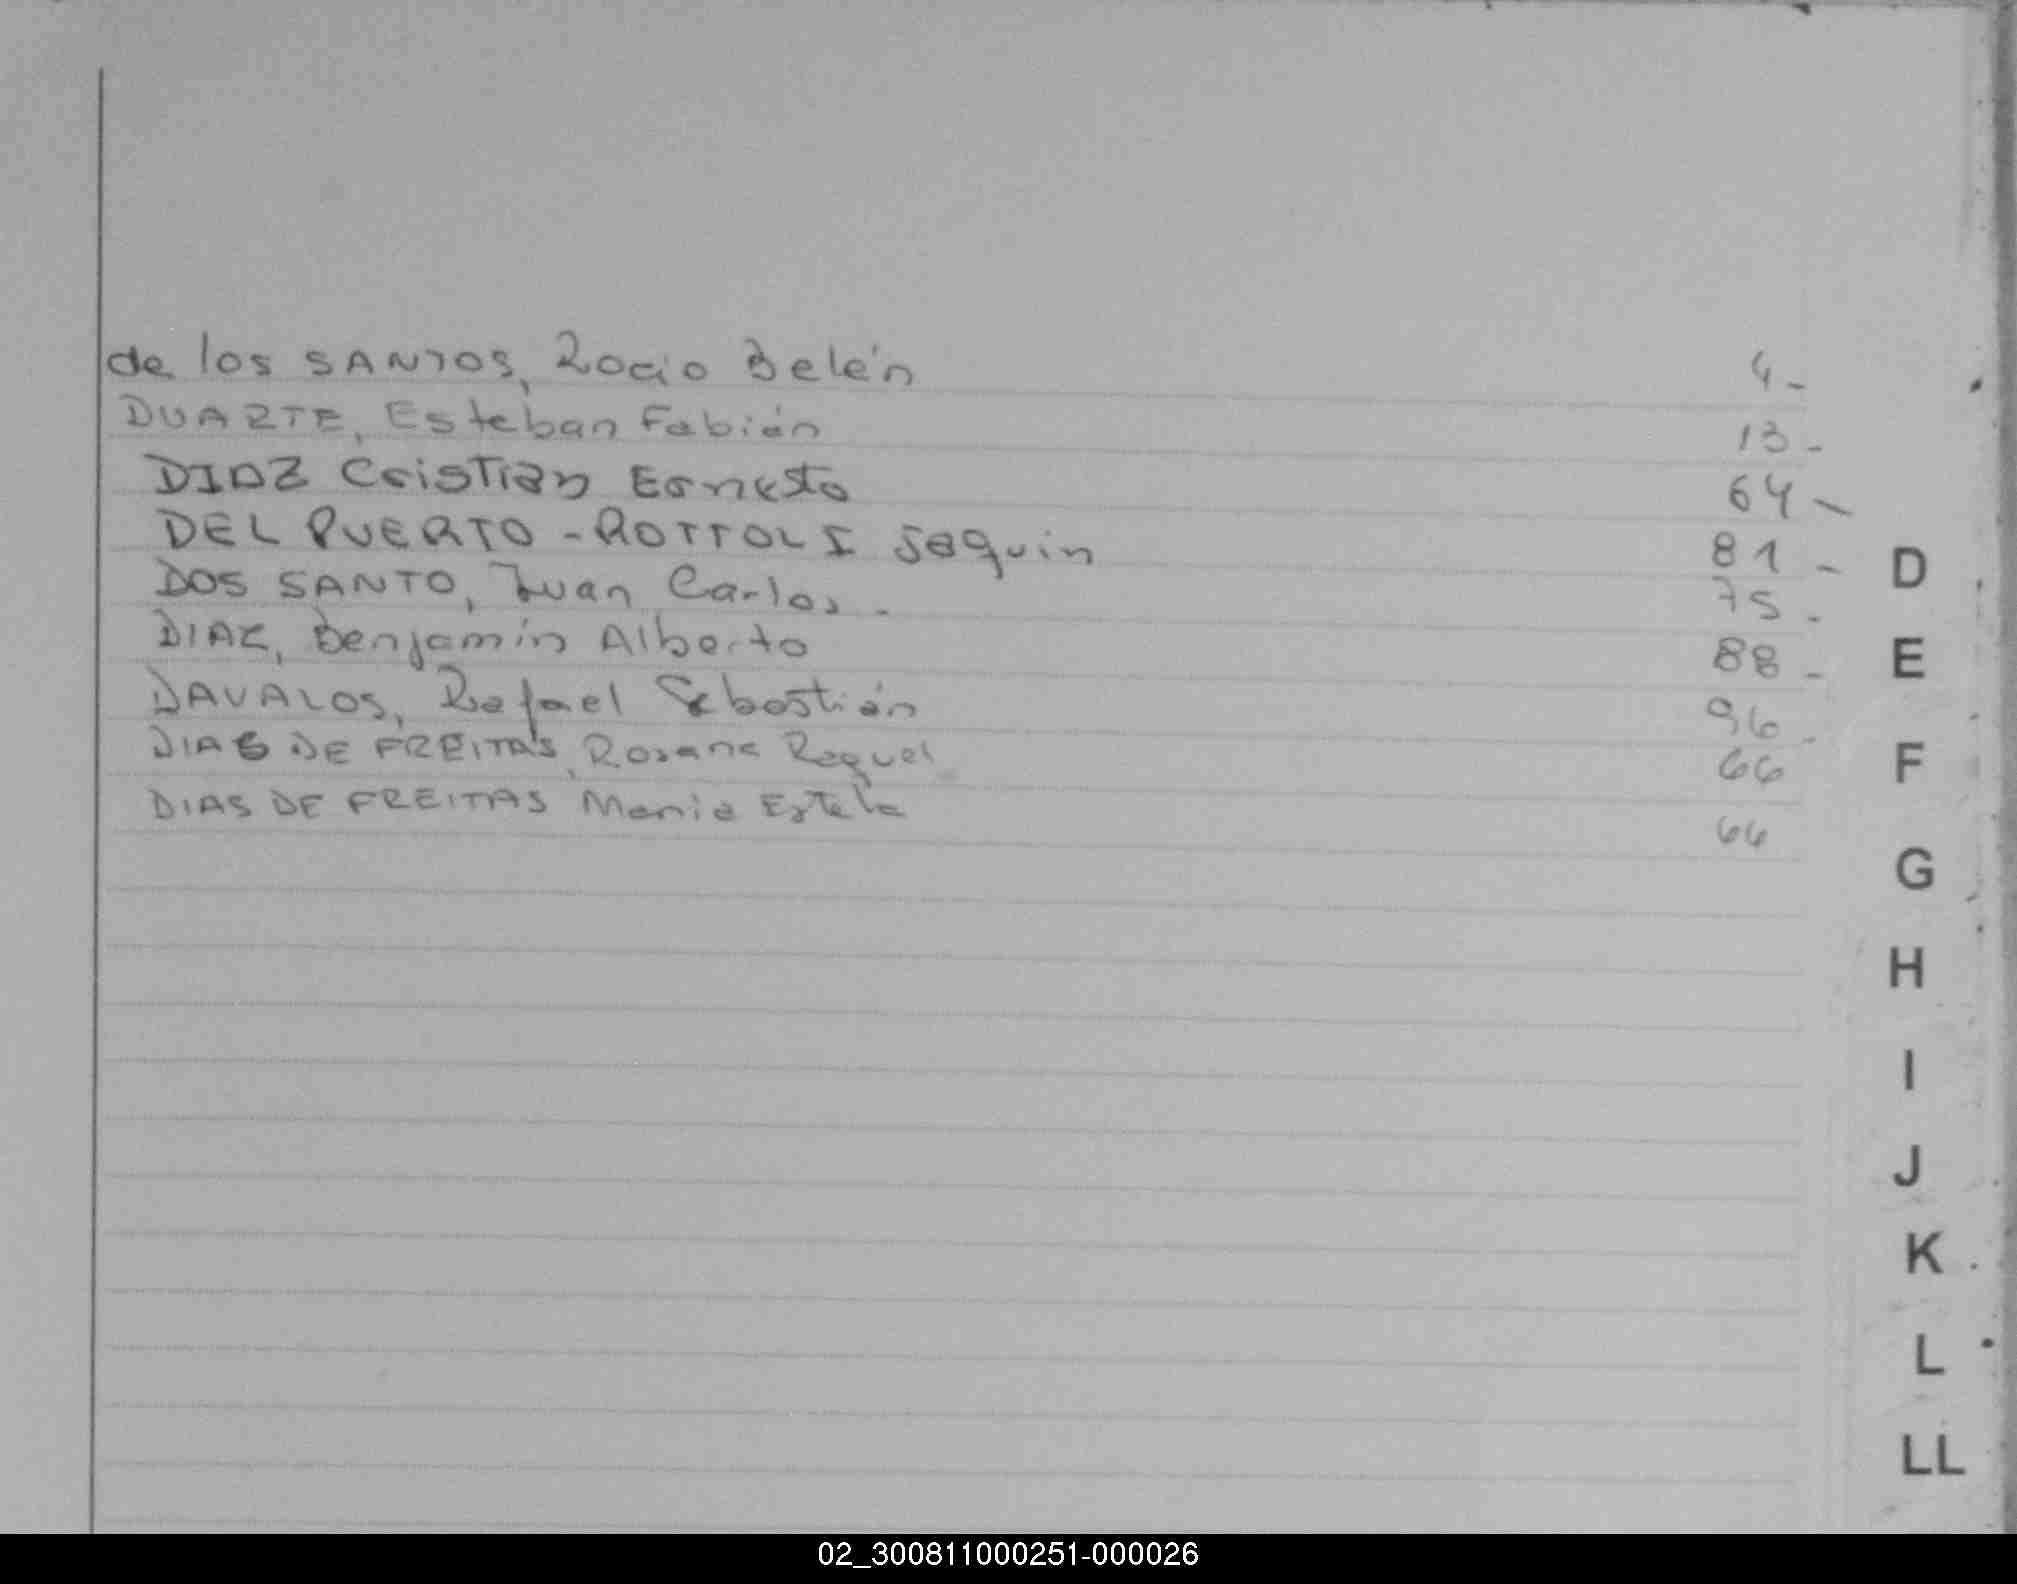 de los SANTOS, Rocio Belén 4-
DUARTE, Esteban Fabián 13-
DIAZ Cristian Ernesto 64-
DEL PUERTO - ROTTOLI Jaquin 81-
DOS SANTO, Juan Carlos. 75-
DIAZ, Benjamín Alberto 88-
DAVALOS, Rafael Sebastián 96-
DIAS DE FREITAS, Rosana Raquel 66
DIAS DE FREITAS Maria Estela 66
D
E
F
G
H
I
J
K
L
LL
02_300811000251-000026